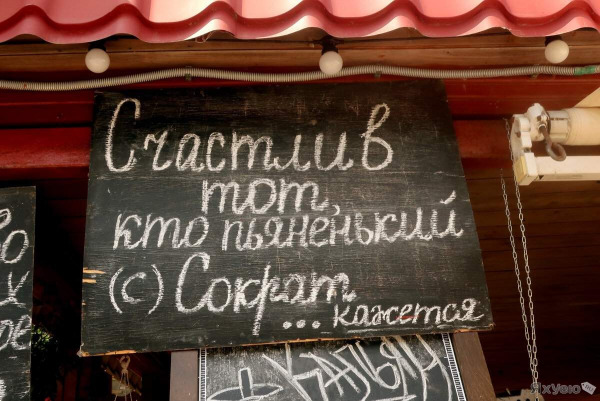 Счастлив
тот,
кто пьяненький
(с) Сократ
... кажется
кальян
ЯхУею